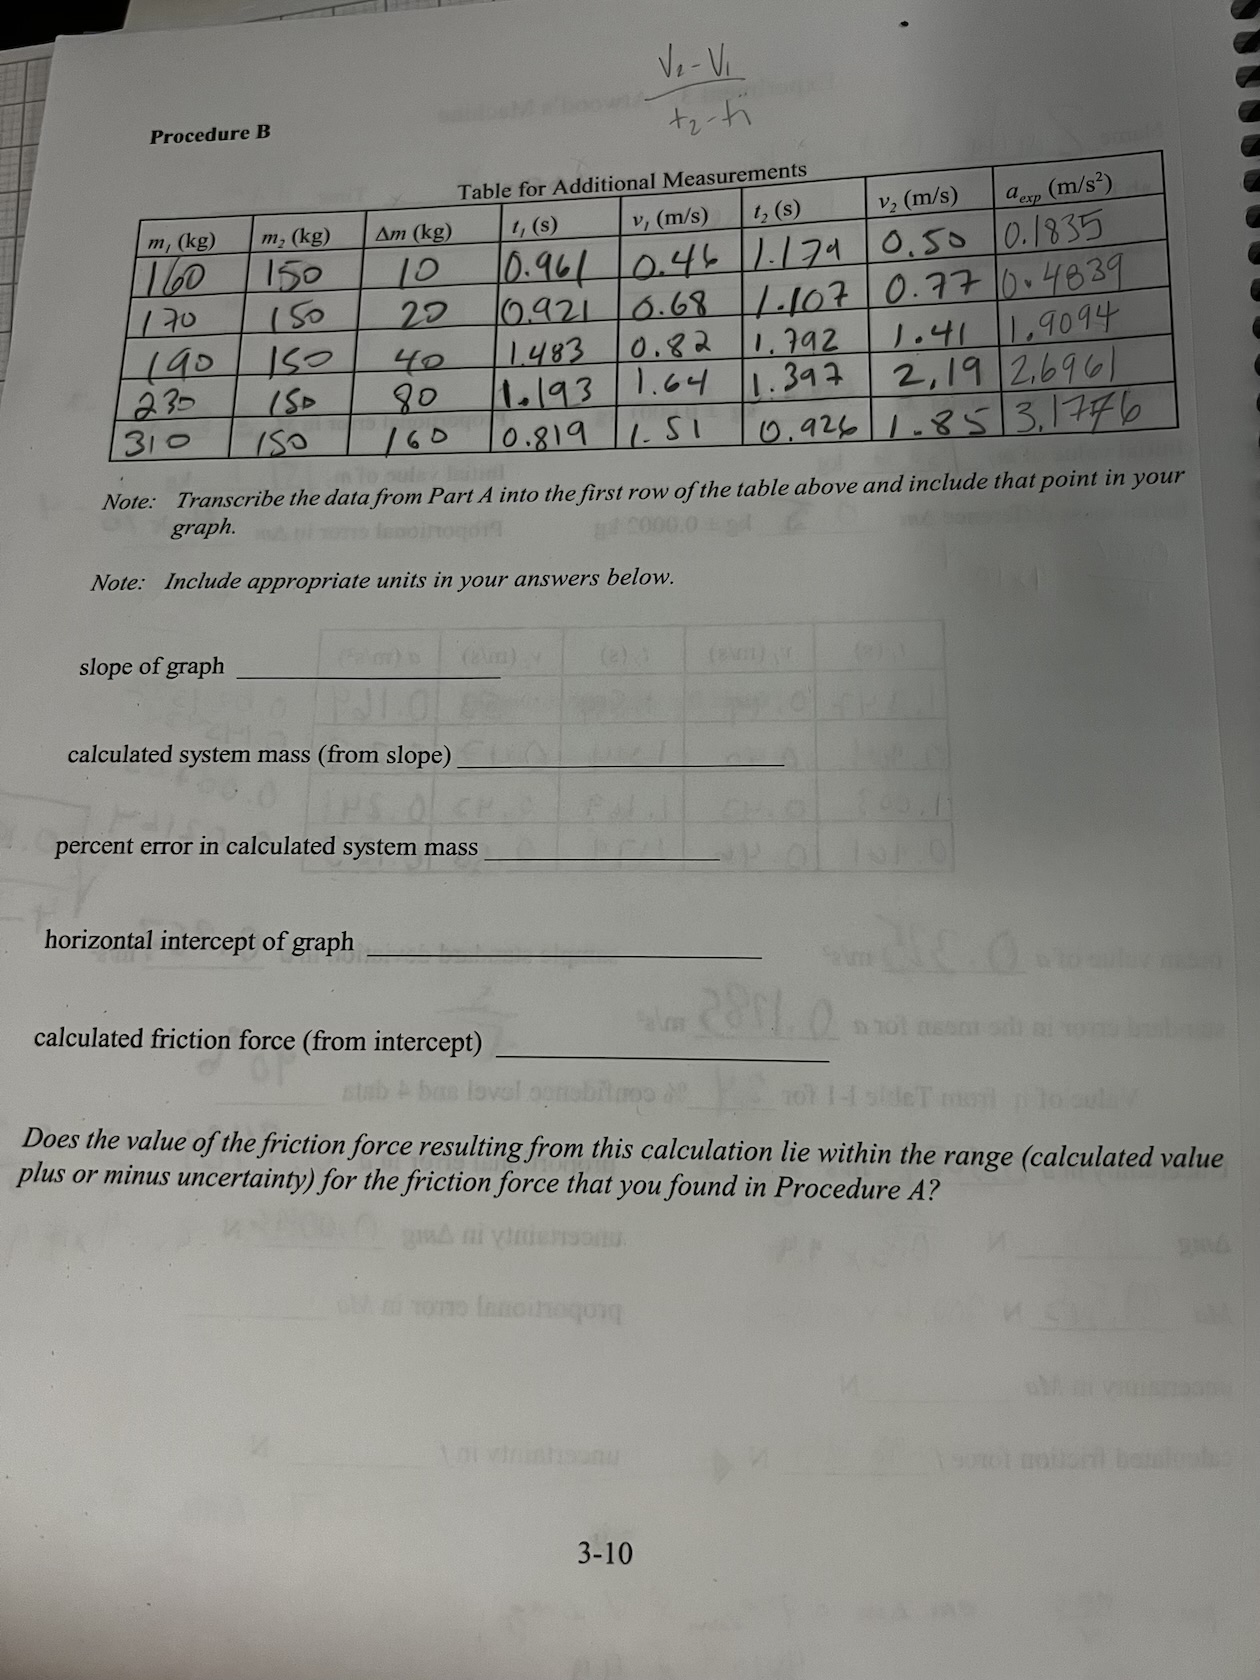 V₂-V₁
t₂-t₁
Procedure B
Table for Additional Measurements
m₁ (kg) m₂ (kg) Δm (kg) t₁ (s) v₁ (m/s) t₂ (s) v₂ (m/s) aₑₓₚ (m/s²)
160 150 10 0.961 0.46 1.179 0.50 0.1835
170 150 20 0.921 0.68 1.107 0.77 0.4839
190 150 40 1.483 0.82 1.792 1.41 1.9094
230 150 80 1.193 1.64 1.397 2.19 2.6961
310 150 160 0.819 1.51 0.926 1.85 3.1776
Note: Transcribe the data from Part A into the first row of the table above and include that point in your
graph.
Note: Include appropriate units in your answers below.
slope of graph
calculated system mass (from slope)
percent error in calculated system mass
horizontal intercept of graph
calculated friction force (from intercept)
Does the value of the friction force resulting from this calculation lie within the range (calculated value
plus or minus uncertainty) for the friction force that you found in Procedure A?
3-10